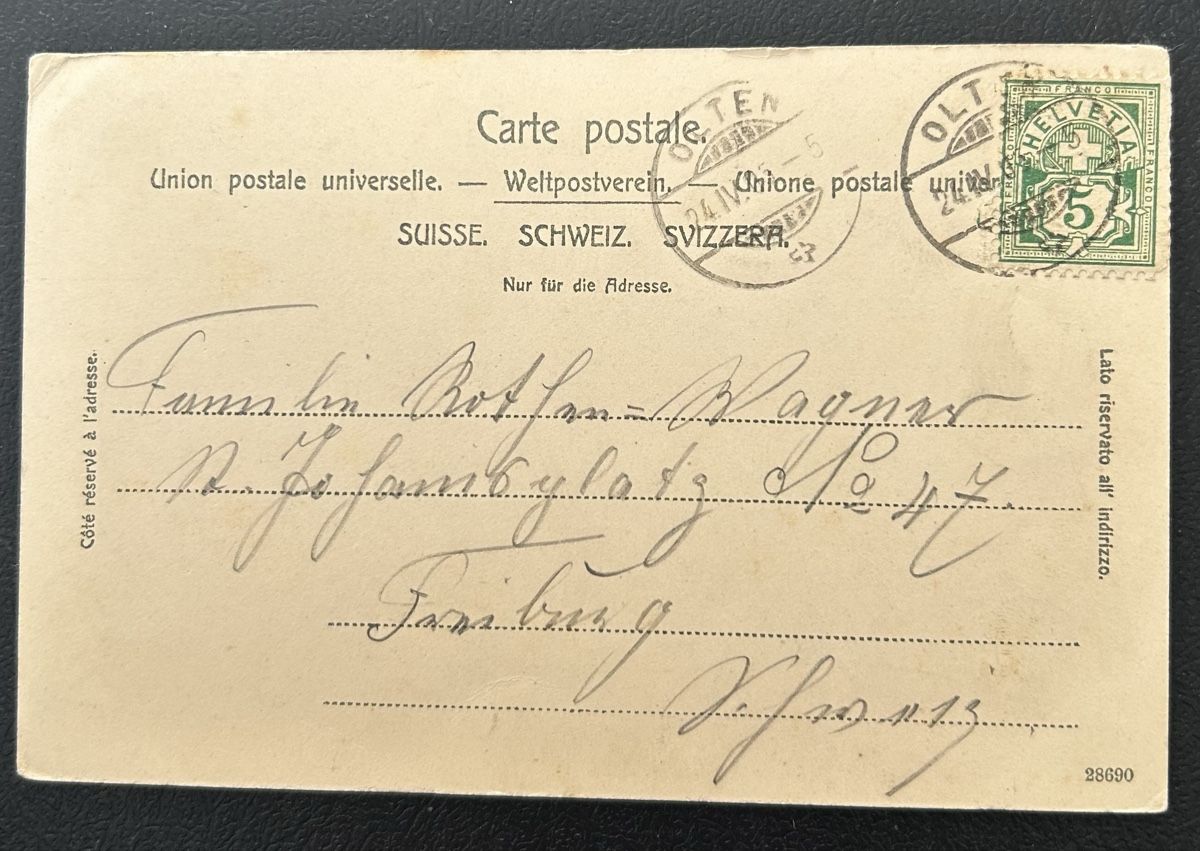 Carte postale.
Union postale universelle. — Weltpostverein. — Unione postale univer
SUISSE. SCHWEIZ. SVIZZERA.
Nur für die Adresse.
OLTEN
24.IV. – 5
OLT
24.IV.
FRANCO
FRANCO
FRANCO
HELVETIA
5
Côté réservé à l'adresse.
Familie Rothen=Wagner
St. Johannsplatz No 47.
Freiburg
Schweiz
Lato riservato all' indirizzo.
28690